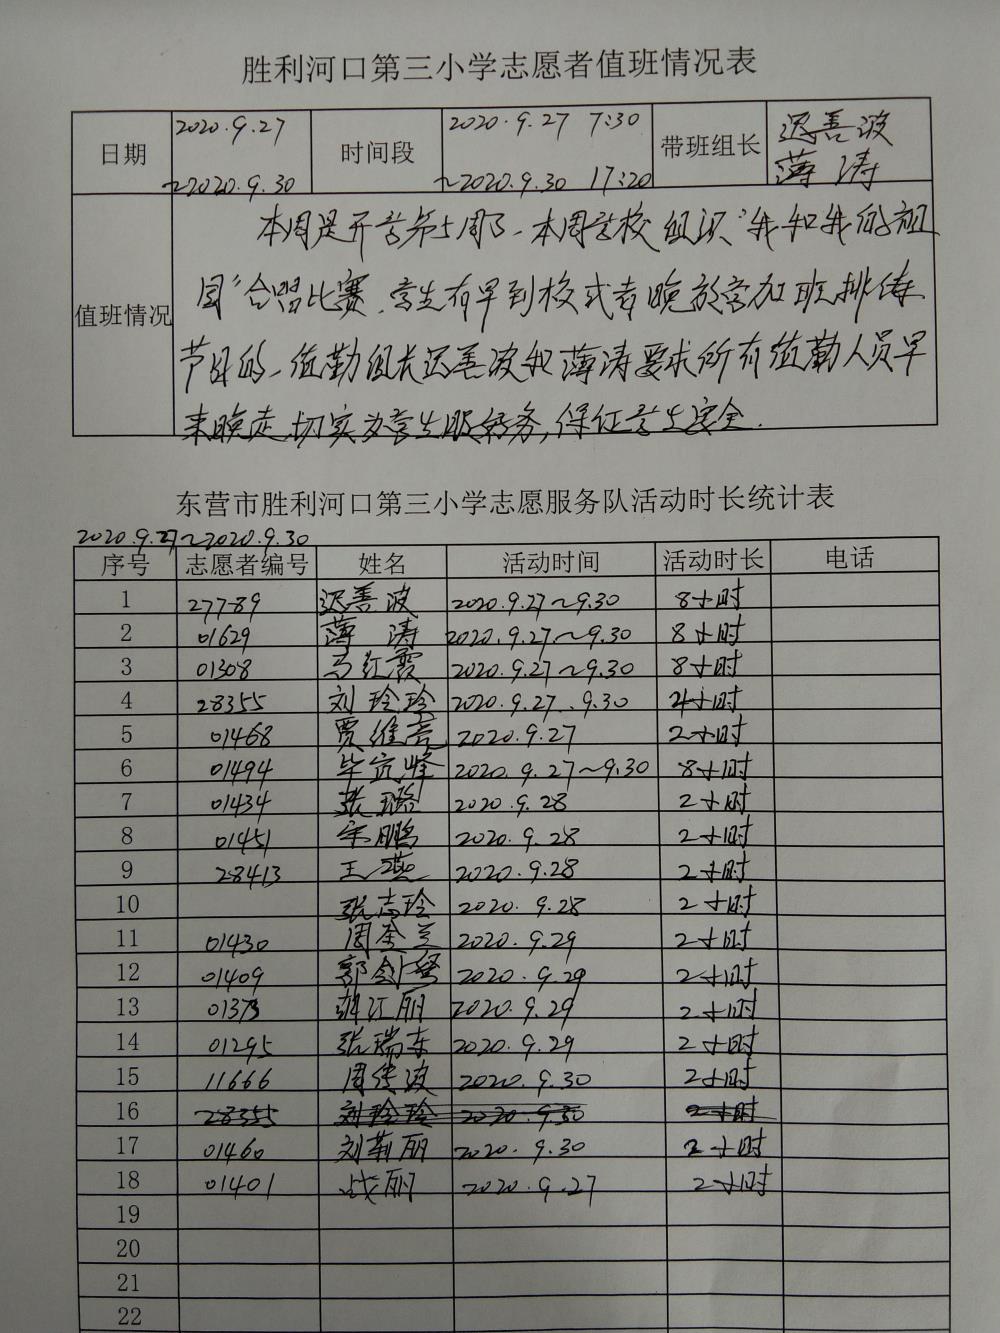 胜利河口第三小学志愿者值班情况表
日期 2020.9.27 ~2020.9.30 时间段 2020.9.27 7:30 ~2020.9.30 17:20 带班组长 迟善波 薄涛
值班情况
本周是开学第5周了、本周学校组织"我和我的祖
国"合唱比赛、学生有早到校或者晚放学加班排练
节目的、值勤组长迟善波和薄涛要求所有值勤人员早
来晚走、切实为学生服好务,保证学生安全.
东营市胜利河口第三小学志愿服务队活动时长统计表
2020.9.27~2020.9.30
序号 志愿者编号 姓名 活动时间 活动时长 电话
1 27789 迟善波 2020.9.27~9.30 8小时
2 01629 薄涛 2020.9.27~9.30 8小时
3 01308 马红霞 2020.9.27~9.30 8小时
4 28355 刘玲玲 2020.9.27、9.30 4小时
5 01468 贾维亮 2020.9.27 2小时
6 01494 毕 峰 2020.9.27~9.30 8小时
7 01434 张璐 2020.9.28 2小时
8 01451 宋鹏 2020.9.28 2小时
9 28413 王燕 2020.9.28 2小时
10 张志玲 2020.9.28 2小时
11 01430 周奎兰 2020.9.29 2小时
12 01409 郭剑 2020.9.29 2小时
13 01373 江丽 2020.9.29 2小时
14 01295 张瑞东 2020.9.29 2小时
15 11666 周传波 2020.9.30 2小时
16 28355 刘玲玲 2020.9.30 2小时
17 01460 刘菊丽 2020.9.30 2小时
18 01401 战丽 2020.9.27 2小时
19
20
21
22